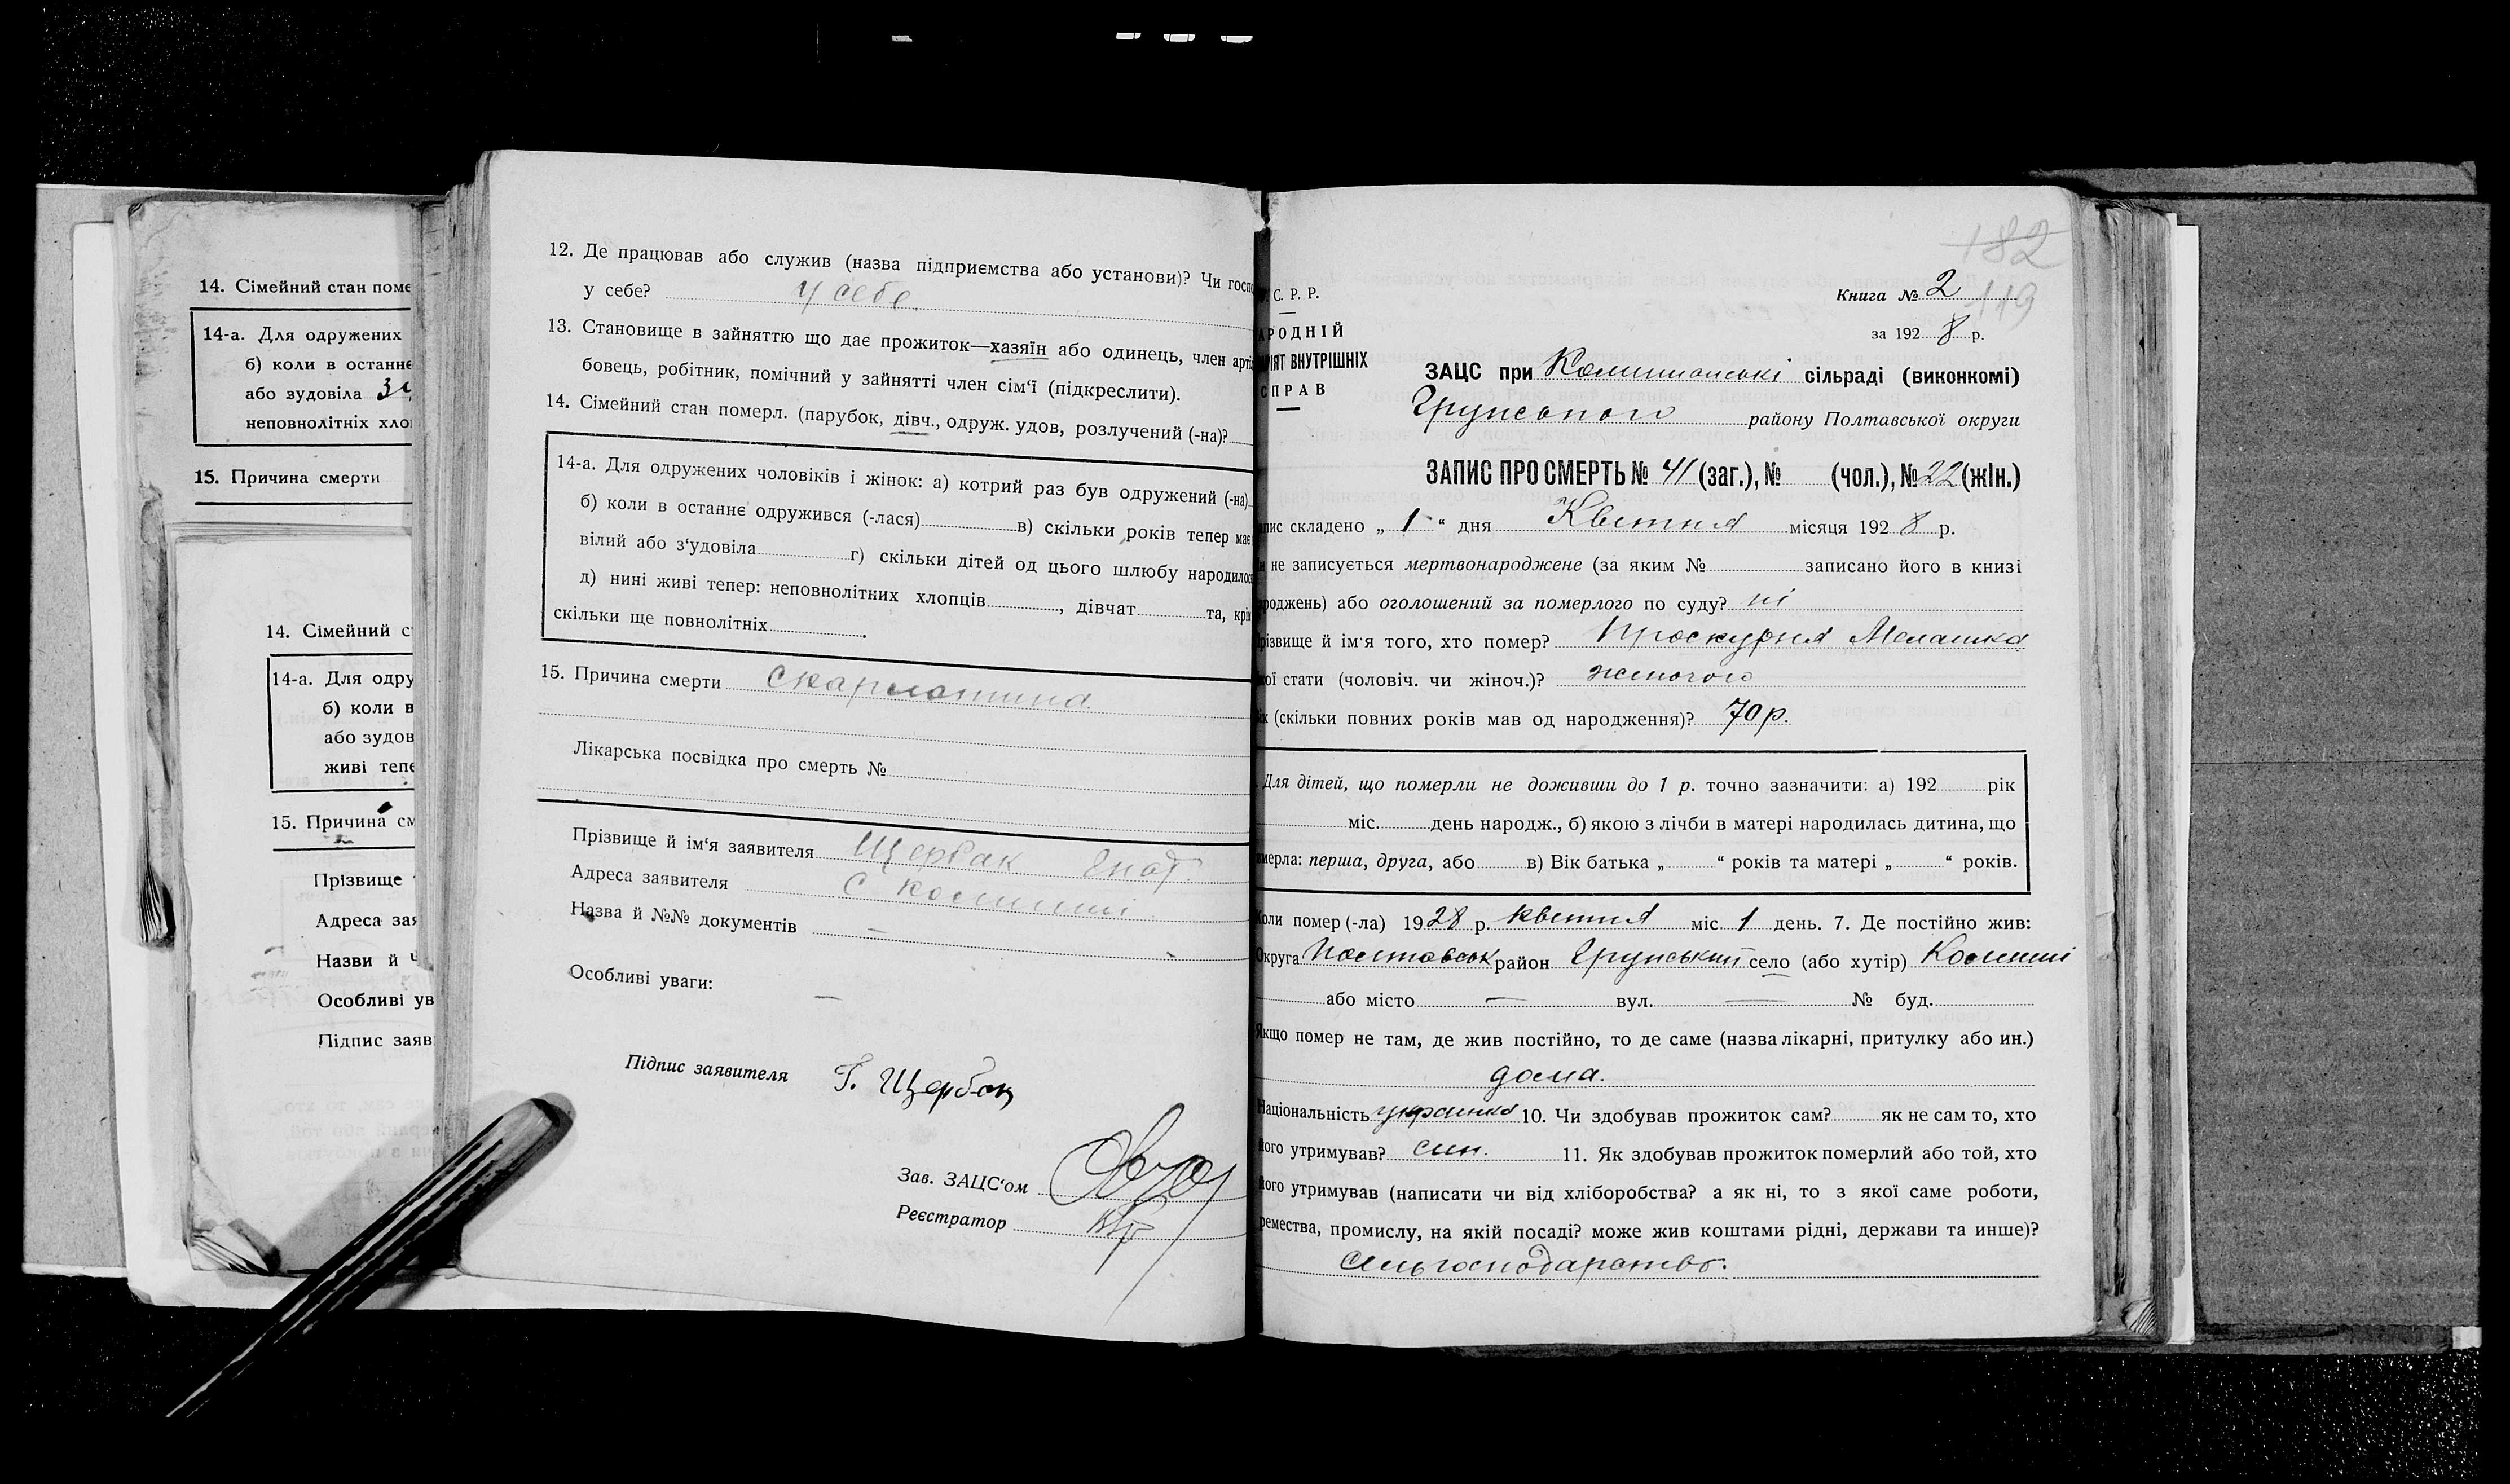 14. Сімейний стан поме
14-а. Для одружених
б) коли в останнє
або зудовіла
неповнолітніх хло
15. Причина смерти
14. Сімейний с
14-а. Для одру
б) коли в
або зудов
живі тепе
15. Причина см
Прізвище
Адреса зая
Назви й
Особливі ув
Підпис заяв
12. Де працював або служив (назва підприємства або установи)? Чи госп
у себе? у себе.
13. Становище в зайняттю що дає прожиток—хазяїн або одинець, член арті
бовець, робітник, помічний у зайнятті член сім'ї (підкреслити).
14. Сімейний стан померл. (парубок, дівч., одруж. удов, розлучений (-на)?
14-а. Для одружених чоловіків і жінок: а) котрий раз був одружений (-на)
б) коли в останнє одружився (-лася) в) скільки років тепер має
вілий або з'удовіла г) скільки дітей од цього шлюбу народилос
д) нині живі тепер: неповнолітних хлопців , дівчат та, крім
скільки ще повнолітніх .
15. Причина смерти Скарлатина
Лікарська посвідка про смерть №
Прізвище й ім'я заявителя Щербак Гнат.
Адреса заявителя с Комиші
Назва й №№ документів —
Особливі уваги: —
Підпис заявителя Г. Щербак
Зав. ЗАЦС'ом
Реєстратор
182
С. Р. Р.
Книга № 2 119
АРОДНІЙ
за 1928 р.
ІЯТ ВНУТРІШНІХ
СПРАВ
ЗАЦС при Комишанські сільраді (виконкомі)
Грунського району Полтавської округи
ЗАПИС ПРО СМЕРТЬ № 41 (заг.), № (чол.), № 22 (жін.)
пис складено „ 1 “ дня Квітня місяця 1928 р.
не записується мертвонароджене (за яким № записано його в книзі
роджень) або оголошений за померлого по суду? ні
різвище й ім'я того, хто помер? Проскурня Мелашка
ої стати (чоловіч. чи жіноч.)? жіночого
ік (скільки повних років мав од народження)? 70 р.
Для дітей, що померли не доживши до 1 р. точно зазначити: а) 192 рік
міс. день народж., б) якою з лічби в матері народилась дитина, що
мерла: перша, друга, або в) Вік батька „ “ років та матері „ “ років.
Коли помер (-ла) 1928 р. квітня міс. 1 день. 7. Де постійно жив:
Округа Полтавськ район Грунський село (або хутір) Комиші
або місто — вул. — № буд.
Якщо помер не там, де жив постійно, то де саме (назва лікарні, притулку або ин.)
дома.
Національність українка 10. Чи здобував прожиток сам? як не сам то, хто
його утримував? син. 11. Як здобував прожиток померлий або той, хто
його утримував (написати чи від хліборобства? а як ні, то з якої саме роботи,
ремества, промислу, на якій посаді? може жив коштами рідні, держави та инше)?
Сільгосподарство.